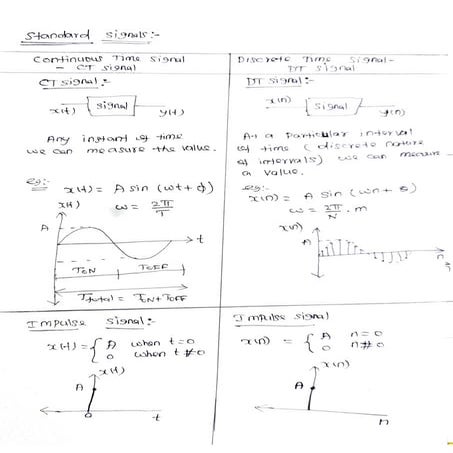 Standard signals:-
Continuous Time Signal
- CT signal
CT signal:-
x(t)
signal
y(t)
Any instant of time
we can measure the value.
eg:-
x(t) = A sin (ωt + ϕ)
ω = 2π/T
x(t)
A
t
TON
TOFF
Ttotal = TON + TOFF
Discrete Time Signal-
DT signal
DT signal:-
x(n)
signal
y(n)
At a Particular interval
of time (discrete nature
of intervals) we can measure
a value.
eg:-
x(n) = A sin (ωn + θ)
ω = 2π/N . m
x(n)
A
n
Impulse signal:-
x(t) = { A when t=0
0 when t≠0
x(t)
A
0
t
Impulse signal:-
x(n) = { A n=0
0 n≠0
x(n)
A
n